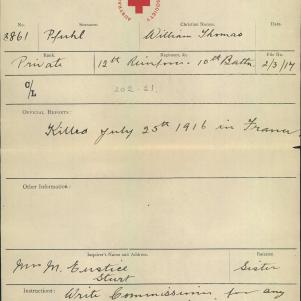 No.
Surname.
Christian Names.
Date
3861 Pfuhl William Thomas
Rank
Regiment, &c.
File No.
Private 12th Reinforc. 10th Battn. 2/3/17
O/L
202-21.
OFFICIAL REPORTS:
Killed July 25th 1916 in France
Other Information:
Inquirer's Name and Address.
Relation
Mrs M. Eustice Sister
Sturt
Instructions: Write Commissioner for any